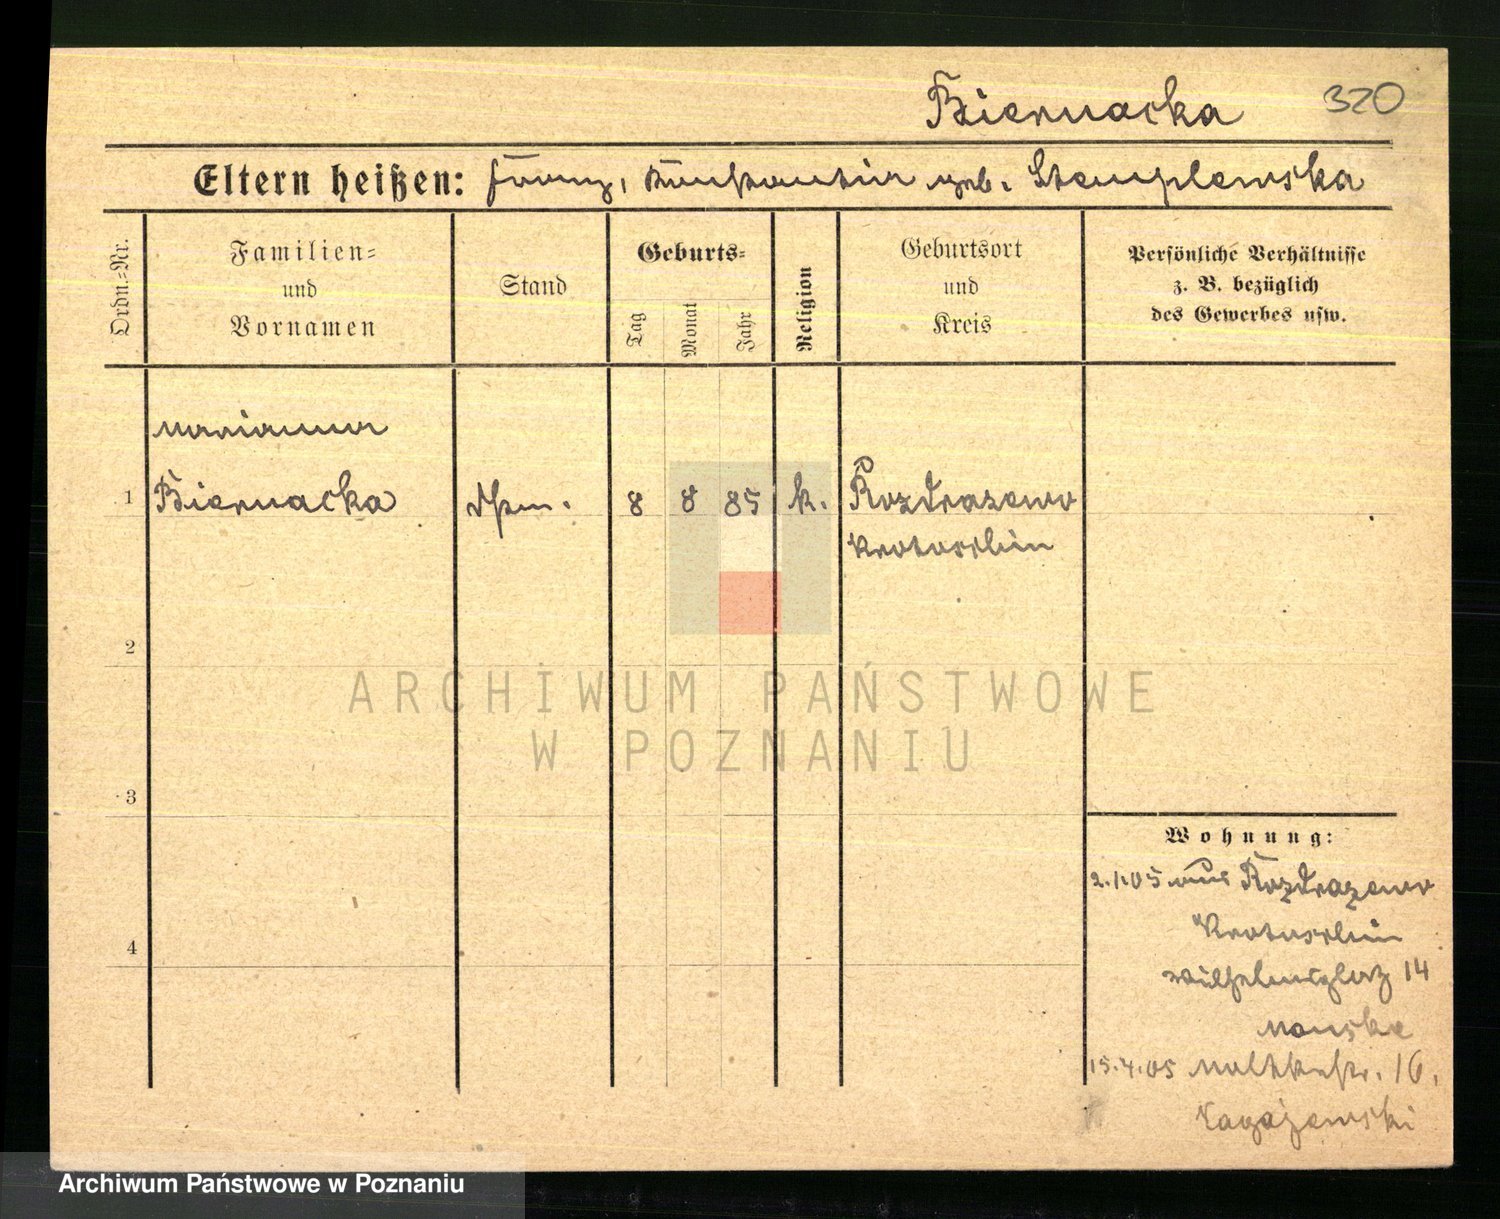 Biernacka 320
Eltern heißen: Franz, Konstantia geb. Stemplewska
Ordn.=Nr.
Familien=
und
Vornamen
Stand
Geburts=
Tag
Monat
Jahr
Religion
Geburtsort
und
Kreis
Persönliche Verhältnisse
z. B. bezüglich
des Gewerbes usw.
Marianna
1 Biernacka 8 8 85 k. Rozdrazewo
Krotoschin
2
ARCHIWUM PAŃSTWOWE
W POZNANIU
3
Wohnung:
2.1.05 aus Rozdrazewo
4
Krotoschin
Wilhelmsplatz 14
Manske
15.4.05 Moltkestr. 16.
Archiwum Państwowe w Poznaniu